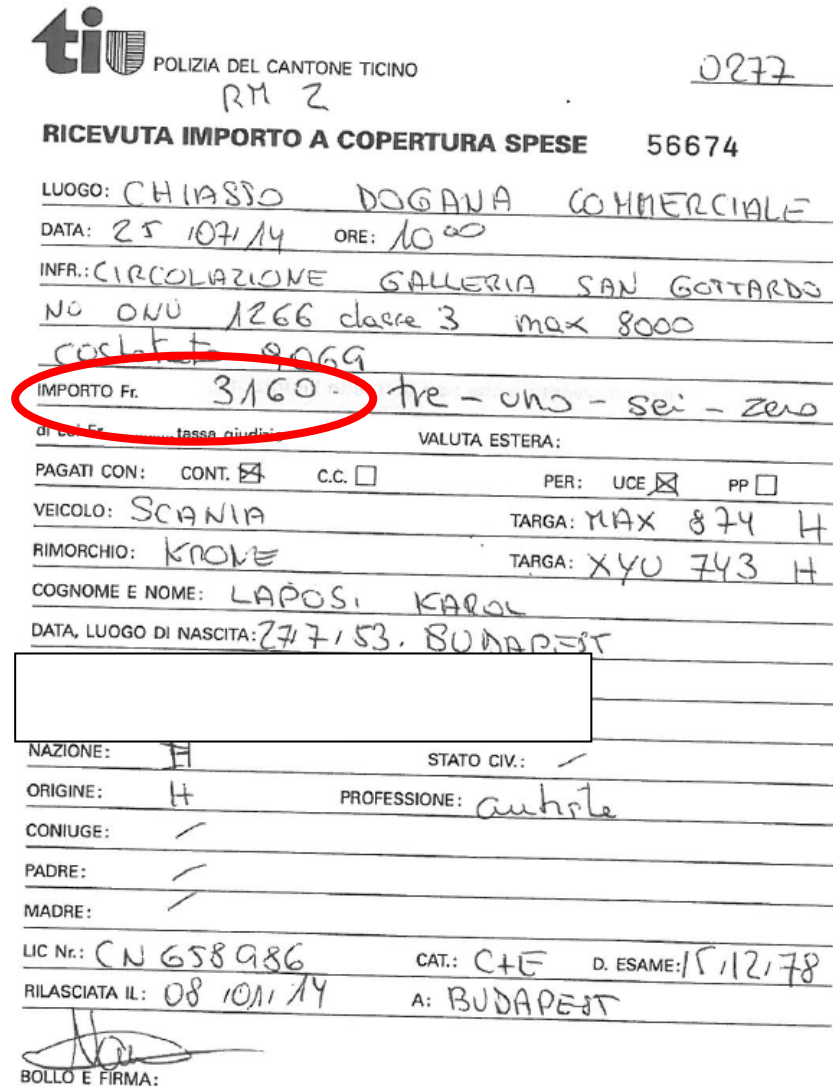 ti POLIZIA DEL CANTONE TICINO 0277
RM 2
RICEVUTA IMPORTO A COPERTURA SPESE 56674
LUOGO: CHIASSO DOGANA COMMERCIALE
DATA: 25 /07/ 14 ORE: 10 00
INFR.: CIRCOLAZIONE GALLERIA SAN GOTTARDO
NO ONU 1266 classe 3 max 8000
IMPORTO Fr. 3160.- tre - uno - sei - zero
di cui Fr. ............ tassa giudizio VALUTA ESTERA:
PAGATI CON: CONT. ☒ C.C. ☐ PER: UCE ☒ PP ☐
VEICOLO: SCANIA TARGA: MAX 874 H
RIMORCHIO: KRONE TARGA: XYU 743 H
COGNOME E NOME: LAPOSI KAROL
DATA, LUOGO DI NASCITA: 27/7/53. BUDAPEST
NAZIONE: H STATO CIV.: /
ORIGINE: H PROFESSIONE: autista
CONIUGE: /
PADRE: /
MADRE: /
LIC Nr.: CN 658986 CAT.: C+E D. ESAME: 15/12/78
RILASCIATA IL: 08 /01/ 14 A: BUDAPEST
BOLLO E FIRMA: